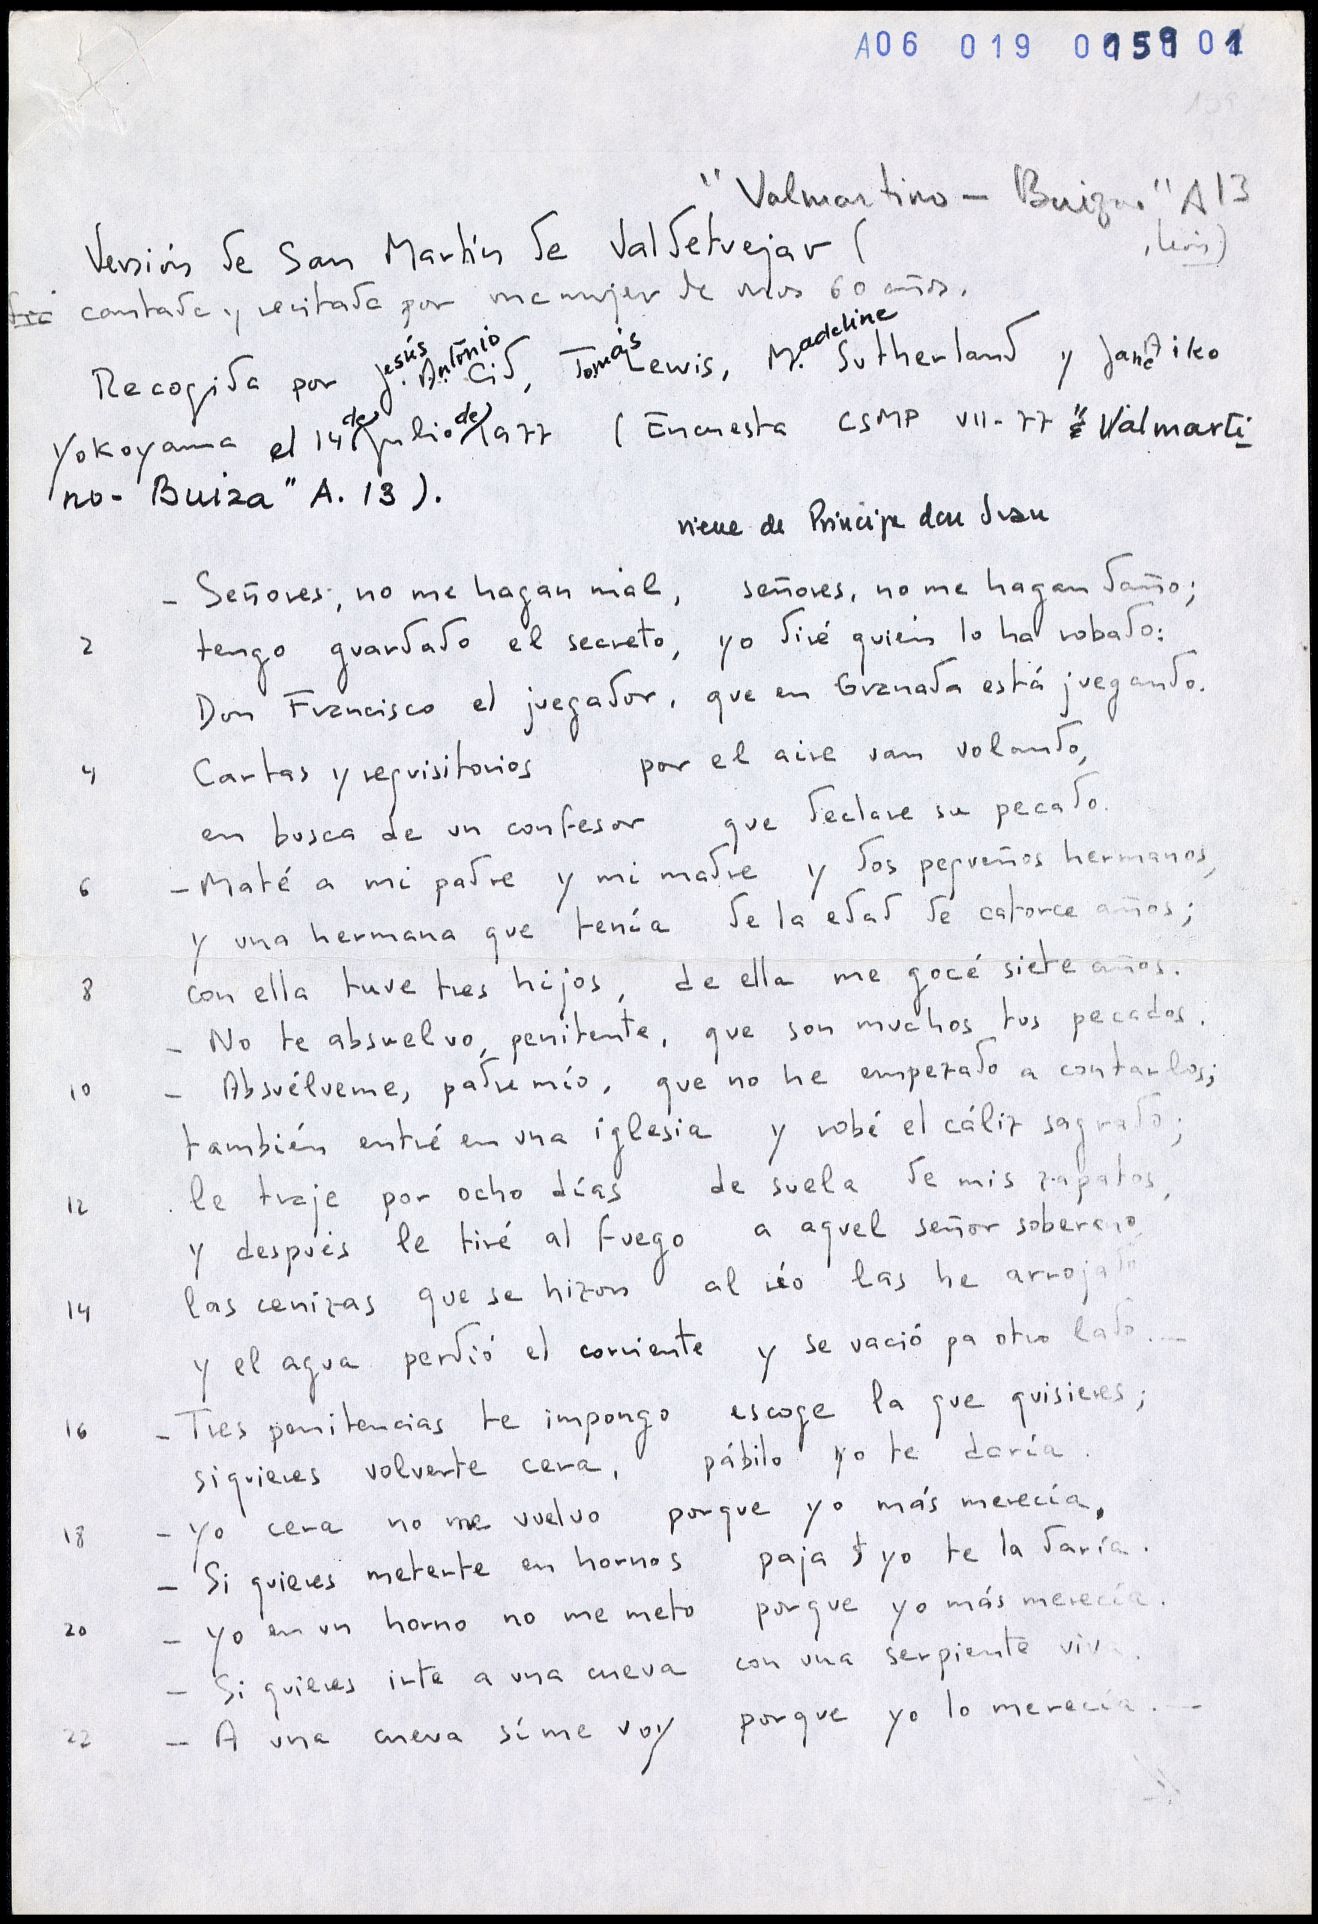 A06 019 0159 01
159
"Valmartino - Buiza" A 13
Versión de San Martín de Valdetuejar (
, León)
cantada y recitada por una mujer de unos 60 años.
Recogida por Jesús Antonio Cid, Tomás Lewis, Madeline Sutherland y Jane Aiko
Yokoyama el 14 de julio de 1977 (Encuesta CSMP VII-77 "Valmarti
no- Buiza" A. 13).
viene de Príncipe don Juan
- Señores, no me hagan mal, señores, no me hagan daño;
2 tengo guardado el secreto, yo diré quién lo ha robado:
Don Francisco el juegador, que en Granada está juegando.
4 Cartas y requisitorios por el aire van volando,
en busca de un confesor que declare su pecado.
6 - Maté a mi padre y mi madre y dos pequeños hermanos,
y una hermana que tenía de la edad de catorce años;
8 con ella tuve tres hijos, de ella me gocé siete años.
- No te absuelvo, penitente, que son muchos tus pecados.
10 - Absuélveme, padre mío, que no he empezado a contarlos;
también entré en una iglesia y robé el cáliz sagrado;
12 le traje por ocho días de suela de mis zapatos,
y después le tiré al fuego a aquel señor soberano
14 las cenizas que se hizon al río las he arrojado
y el agua perdió el corriente y se vació pa otro lado. —
16 - Tres penitencias te impongo escoge la que quisieres;
si quieres volverte cera, pábilo yo te daría.
18 - Yo cera no me vuelvo porque yo más merecía.
- Si quieres meterte en hornos paja yo te la daría.
20 - Yo en un horno no me meto porque yo más merecía.
- Si quieres irte a una cueva con una serpiente viva.
22 - A una cueva sí me voy porque yo lo merecía. —